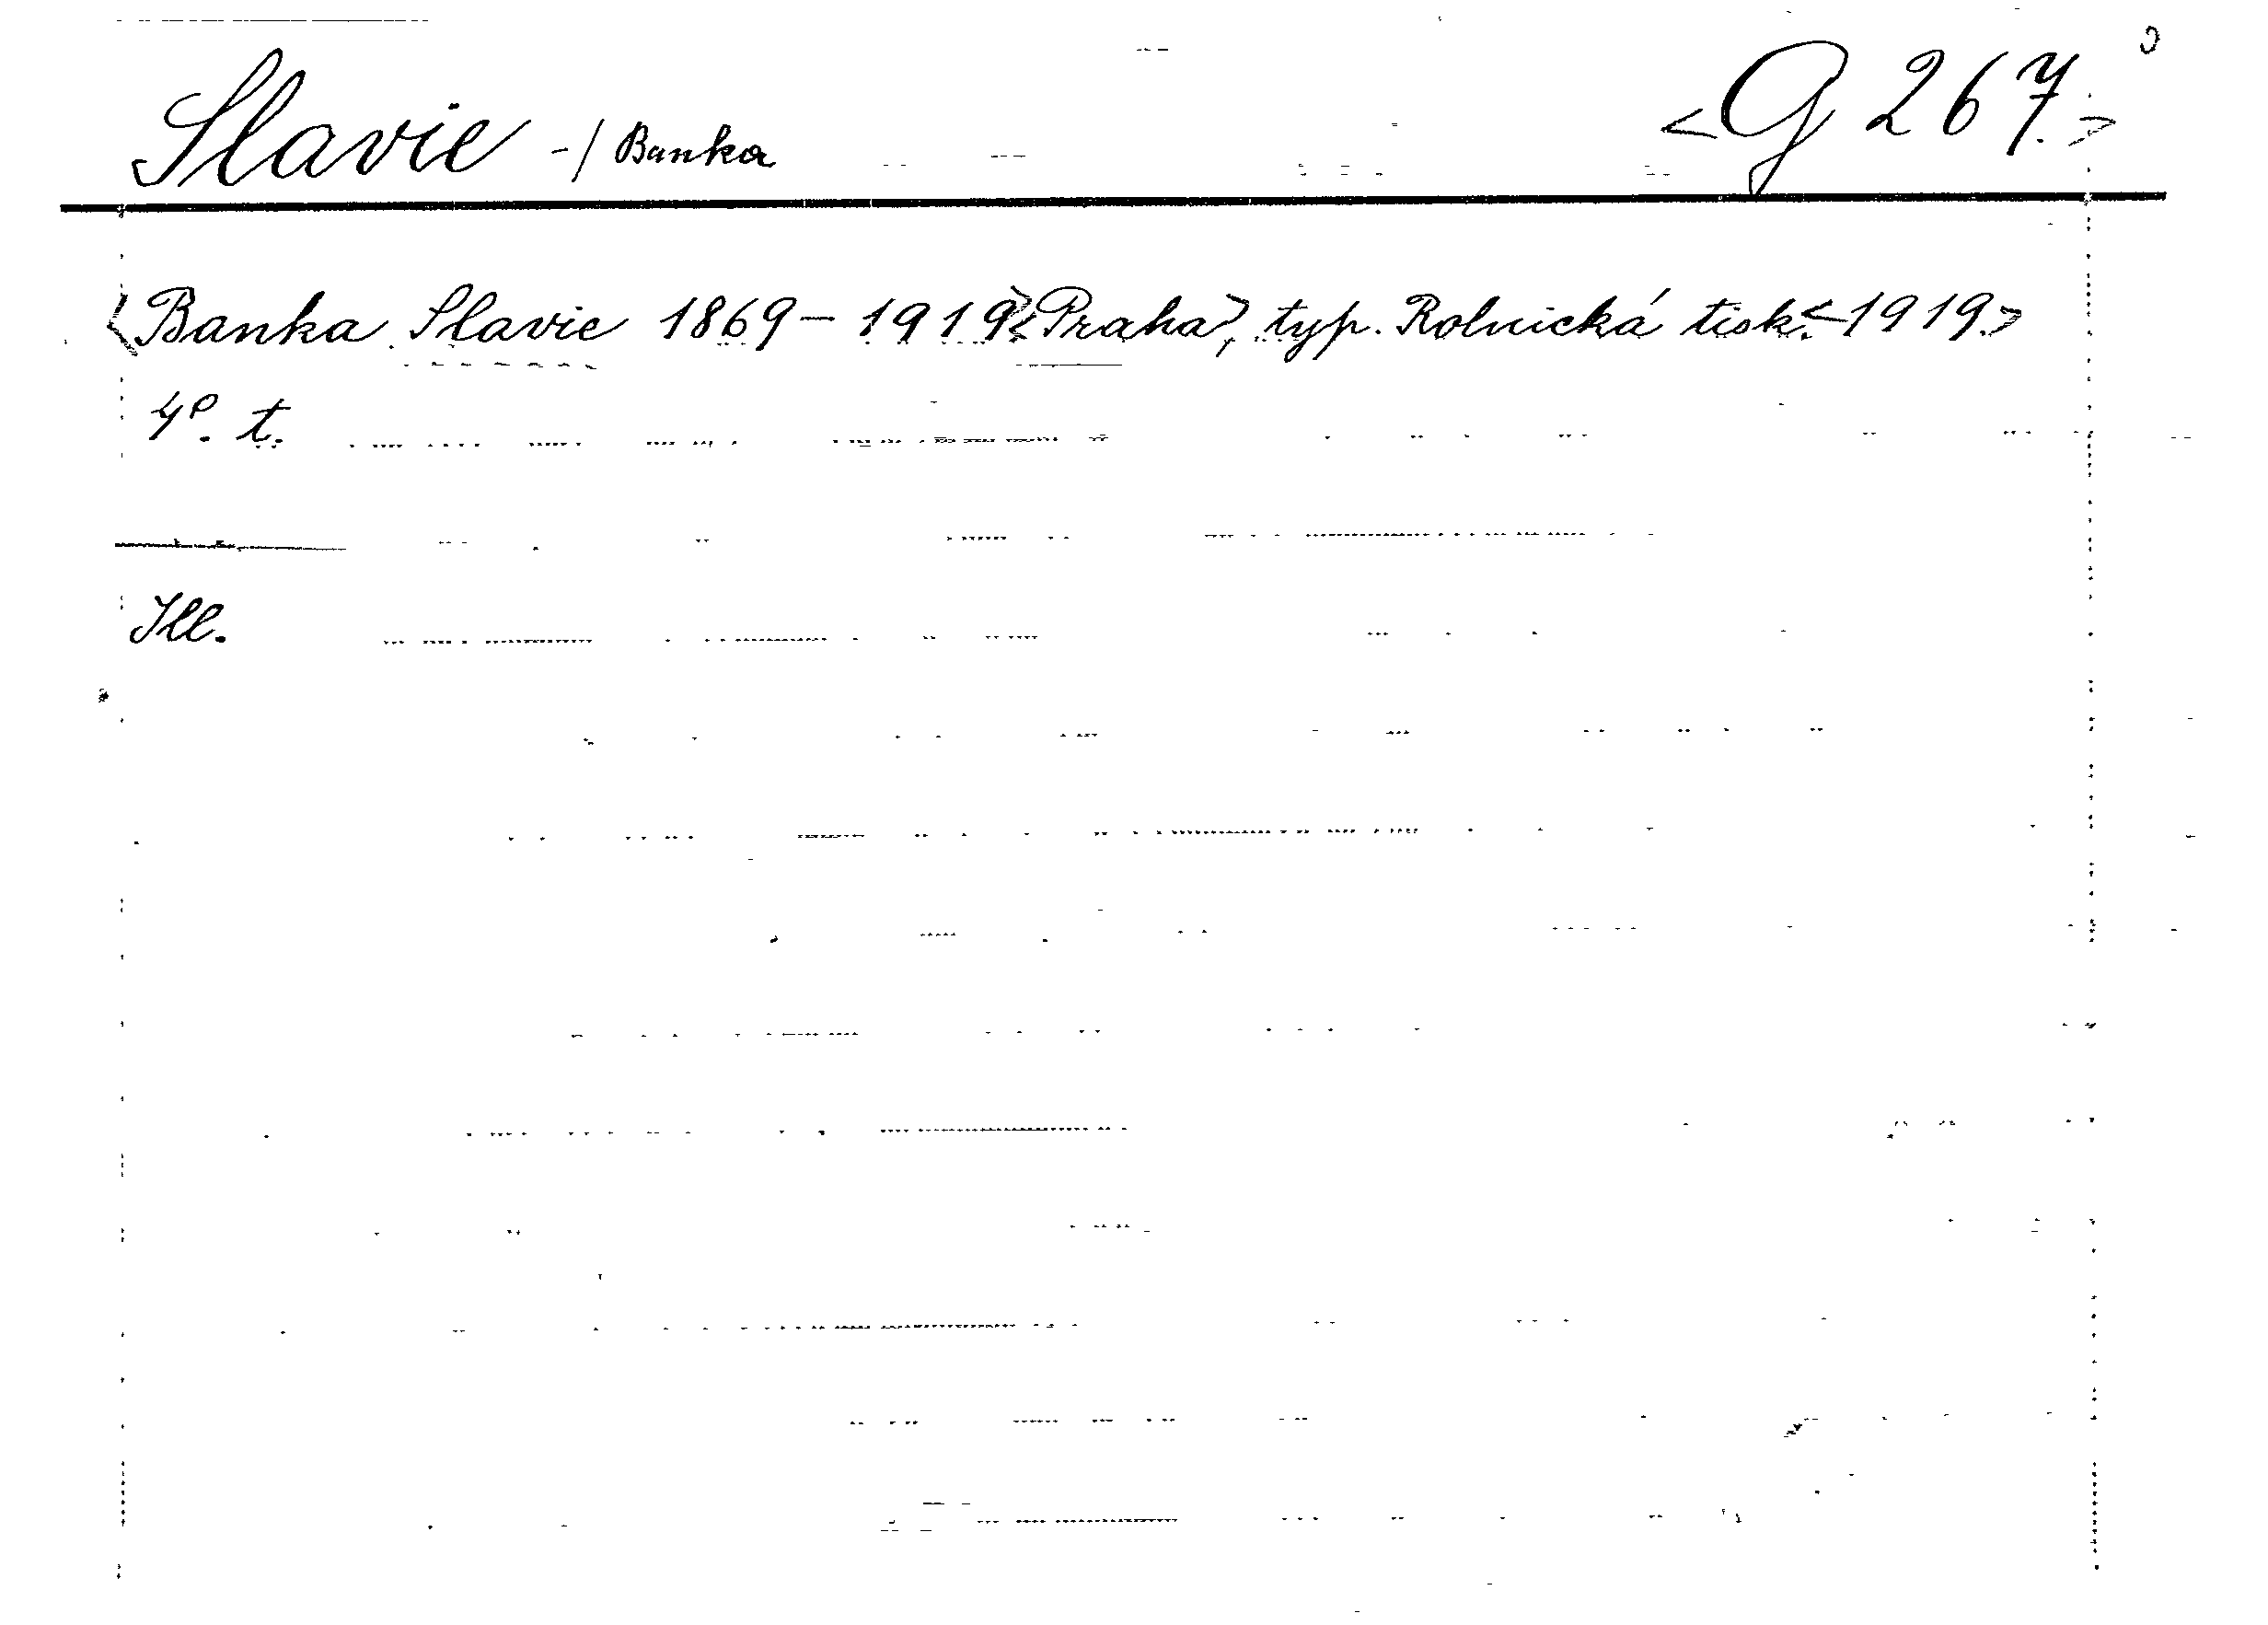 Slavie -/ Banka <G 267.>
<Banka Slavie 1869-1919> <Praha>, typ. Rolnická tisk. <1919.>
4°. t.
Ill.